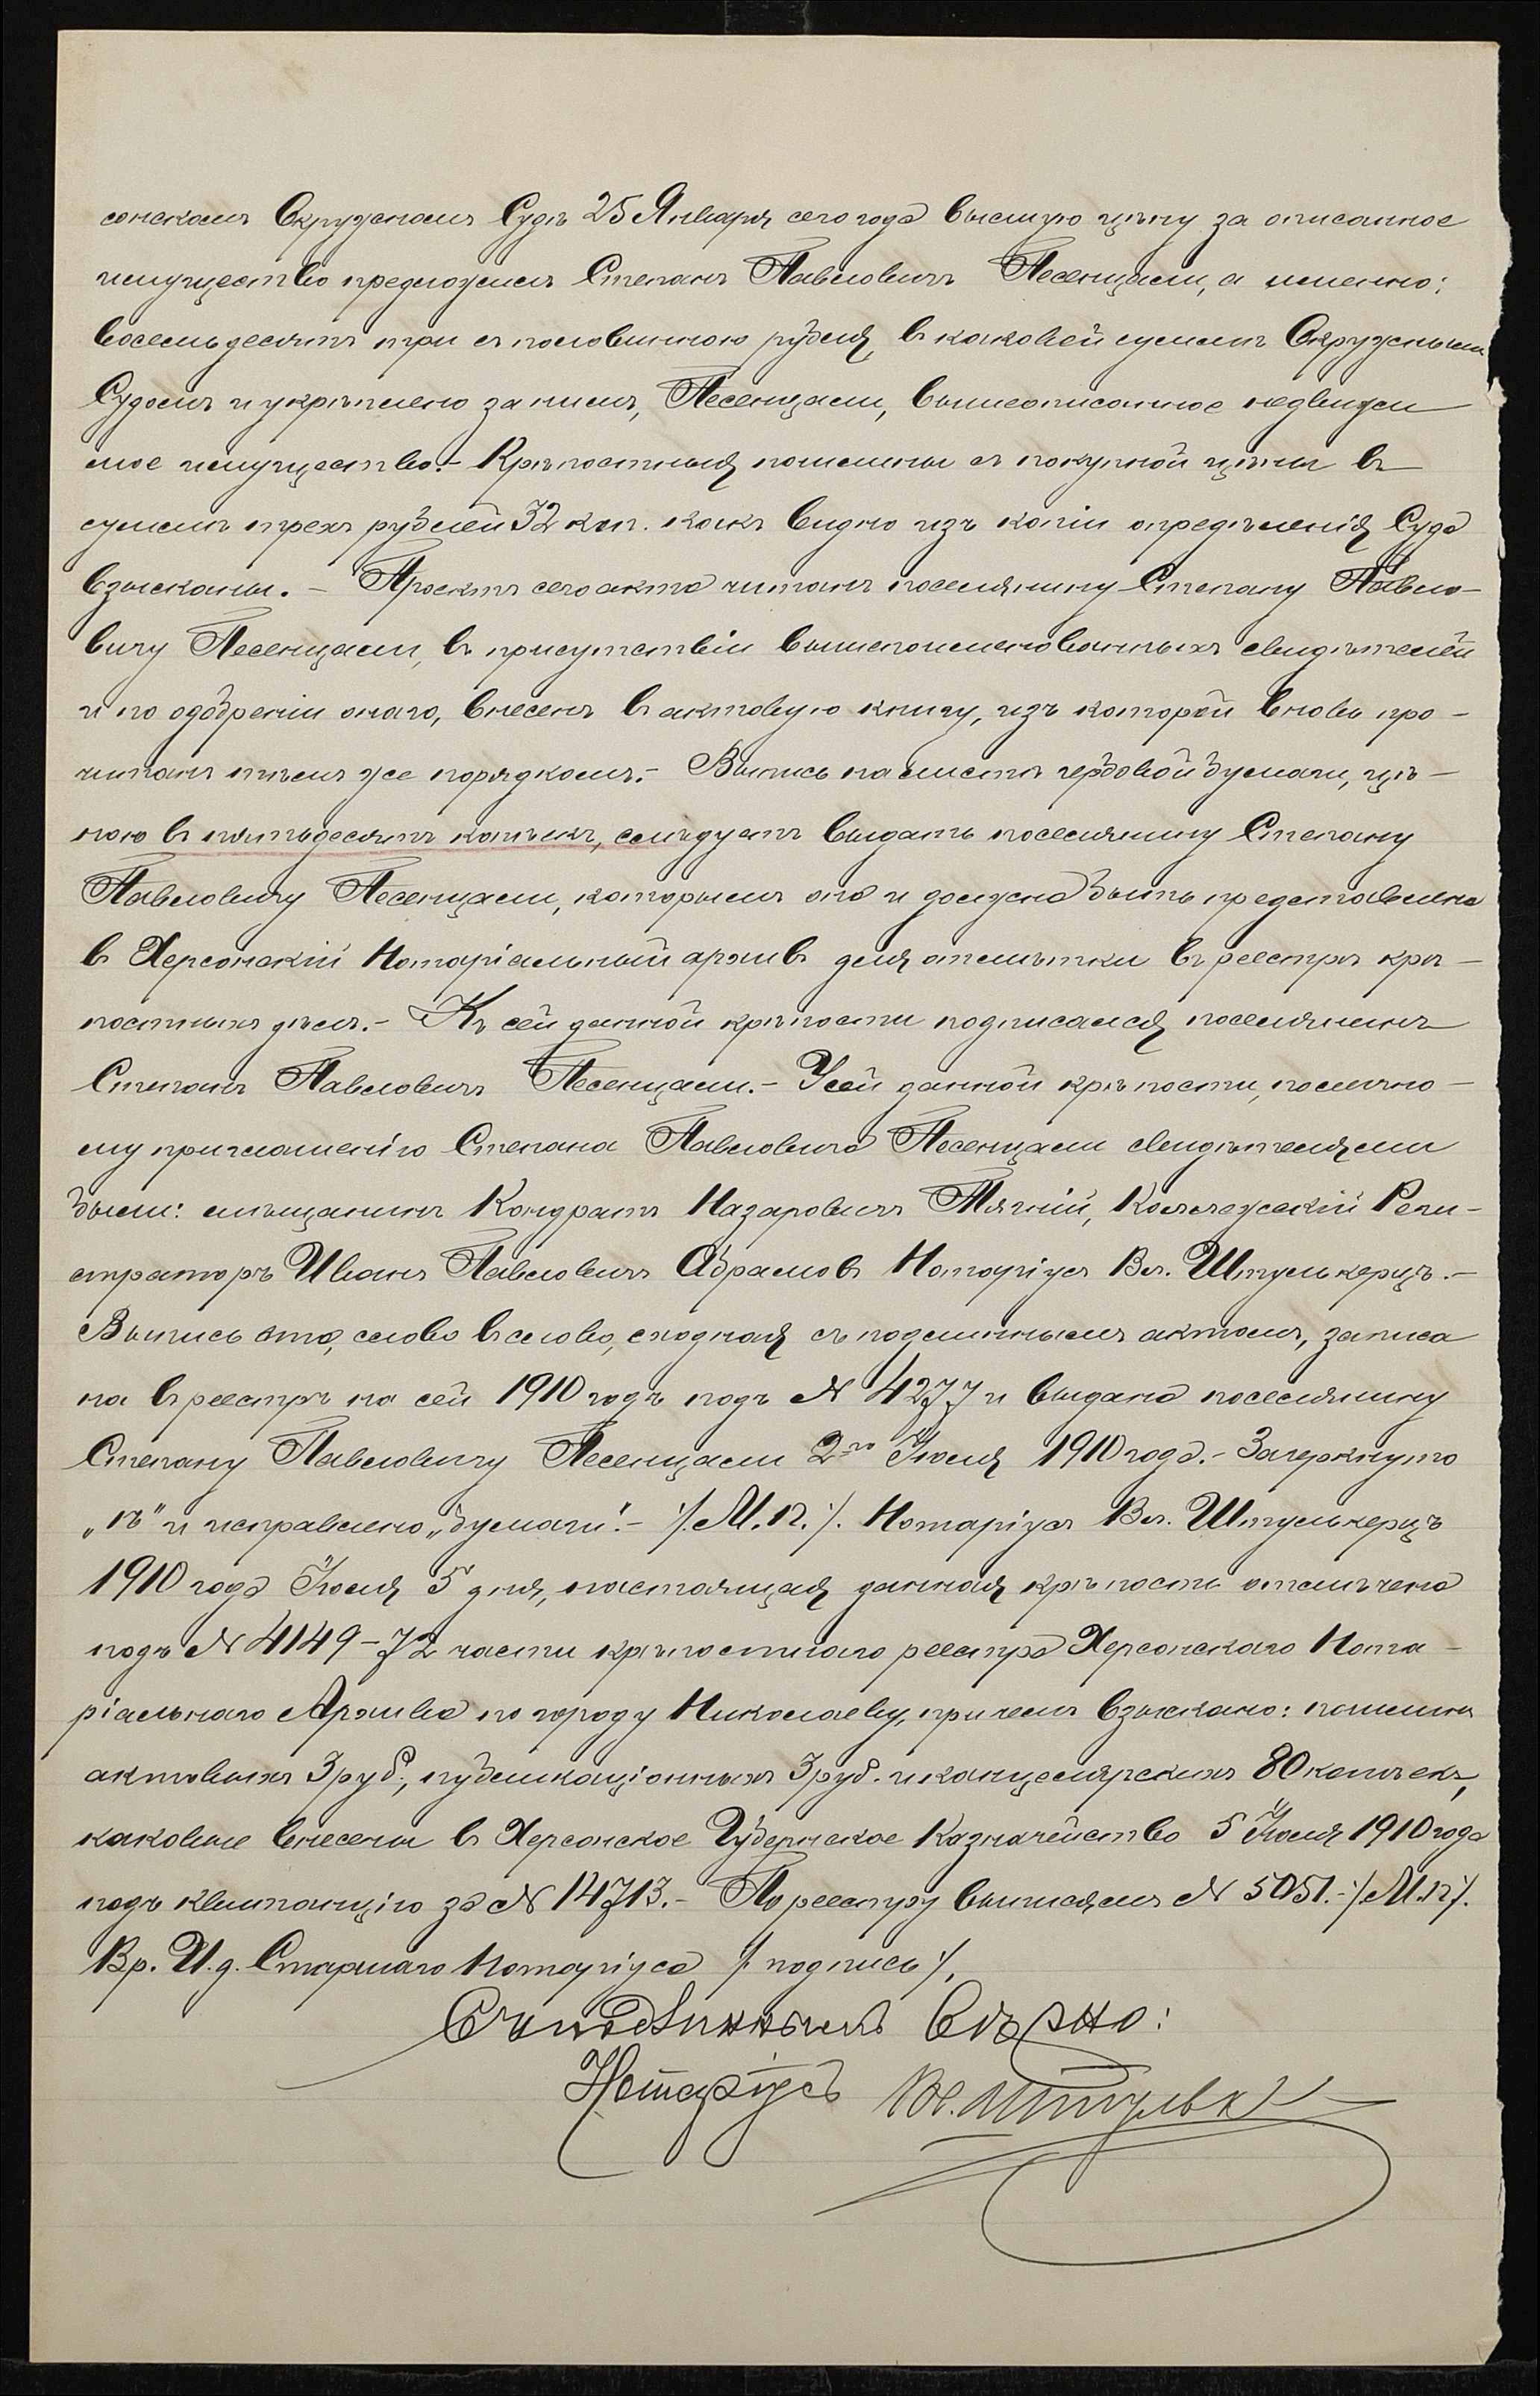 сонскомъ Окружномъ Судѣ 25 Января сего года высшую цѣну за описанное
имущество предложилъ Степанъ Павловичъ Песенцали, а именно:
восемьдесятъ три съ половиною рубля, въ каковой суммѣ Окружнымъ
Судомъ и укрѣплено за нимъ, Песенцали, вышеописанное недвижи
мое имущество.- Крѣпостныя пошлины съ покупной цѣны въ
суммѣ трехъ рублей 32 коп. какъ видно изъ копіи опредѣленія Суда
взысканы. - Проектъ сего акта читанъ поселянину Степану Павло-
вичу Песенцали, въ присутствіи вышепоименованныхъ свидѣтелей
и по одобреніи онаго, внесенъ въ актовую книгу, изъ которой вновь про-
читанъ тѣмъ же порядкомъ.- Выпись на листѣ гербовой бумаги, цѣ-
ною въ пятьдесятъ копѣекъ, слѣдуетъ выдать поселянину Степану
Павловичу Песенцали, которымъ она и должна быть представлена
въ Херсонскій Нотаріальный архивъ для отмѣтки въ реестрѣ крѣ-
постныхъ дѣлъ.- Къ сей данной крѣпости подписался поселянинъ
Степанъ Павловичъ Песенцали.- У сей данной крѣпости, по лично-
му приглашенію Степана Павловича Песенцали свидѣтелями
были: мѣщанинъ Кондратъ Назаровичъ Тягній, Коллежскій Реги-
страторъ Иванъ Павловичъ Абрамовъ Нотаріусъ Вл. Штулькерцъ.-
Выпись эта, слово въ слово, сходная съ подлиннымъ актомъ, записа
на въ реестрѣ на сей 1910 годъ подъ № 4277 и выдана поселянину
Степану Павловичу Песенцали 2го Іюля 1910 года.- Зачеркнуто
„ѣ" и исправлено „бумаги".- /.М.П./. Нотаріусъ Вл. Штулькерцъ
1910 года Іюля 5 дня, настоящая данная крѣпость отмѣчена
подъ № 4149-72 части крѣпостнаго реестра Херсонскаго Нота-
ріальнаго Архива по городу Николаеву, при чемъ взыскано: пошлинъ
актовыхъ 3 руб., публикаціонныхъ 3 руб. и канцелярскихъ 80 копѣекъ,
каковые внесены въ Херсонское Губернское Казначейство 5 Іюля 1910 года
подъ квитанцію за № 14713.- По реестру выписямъ № 5051.-/.М.П./.
Вр. И.д. Старшаго Нотаріуса /.подпись/.
Съ подлиннымъ вѣрно:
Нотаріусъ Вл. Штульк